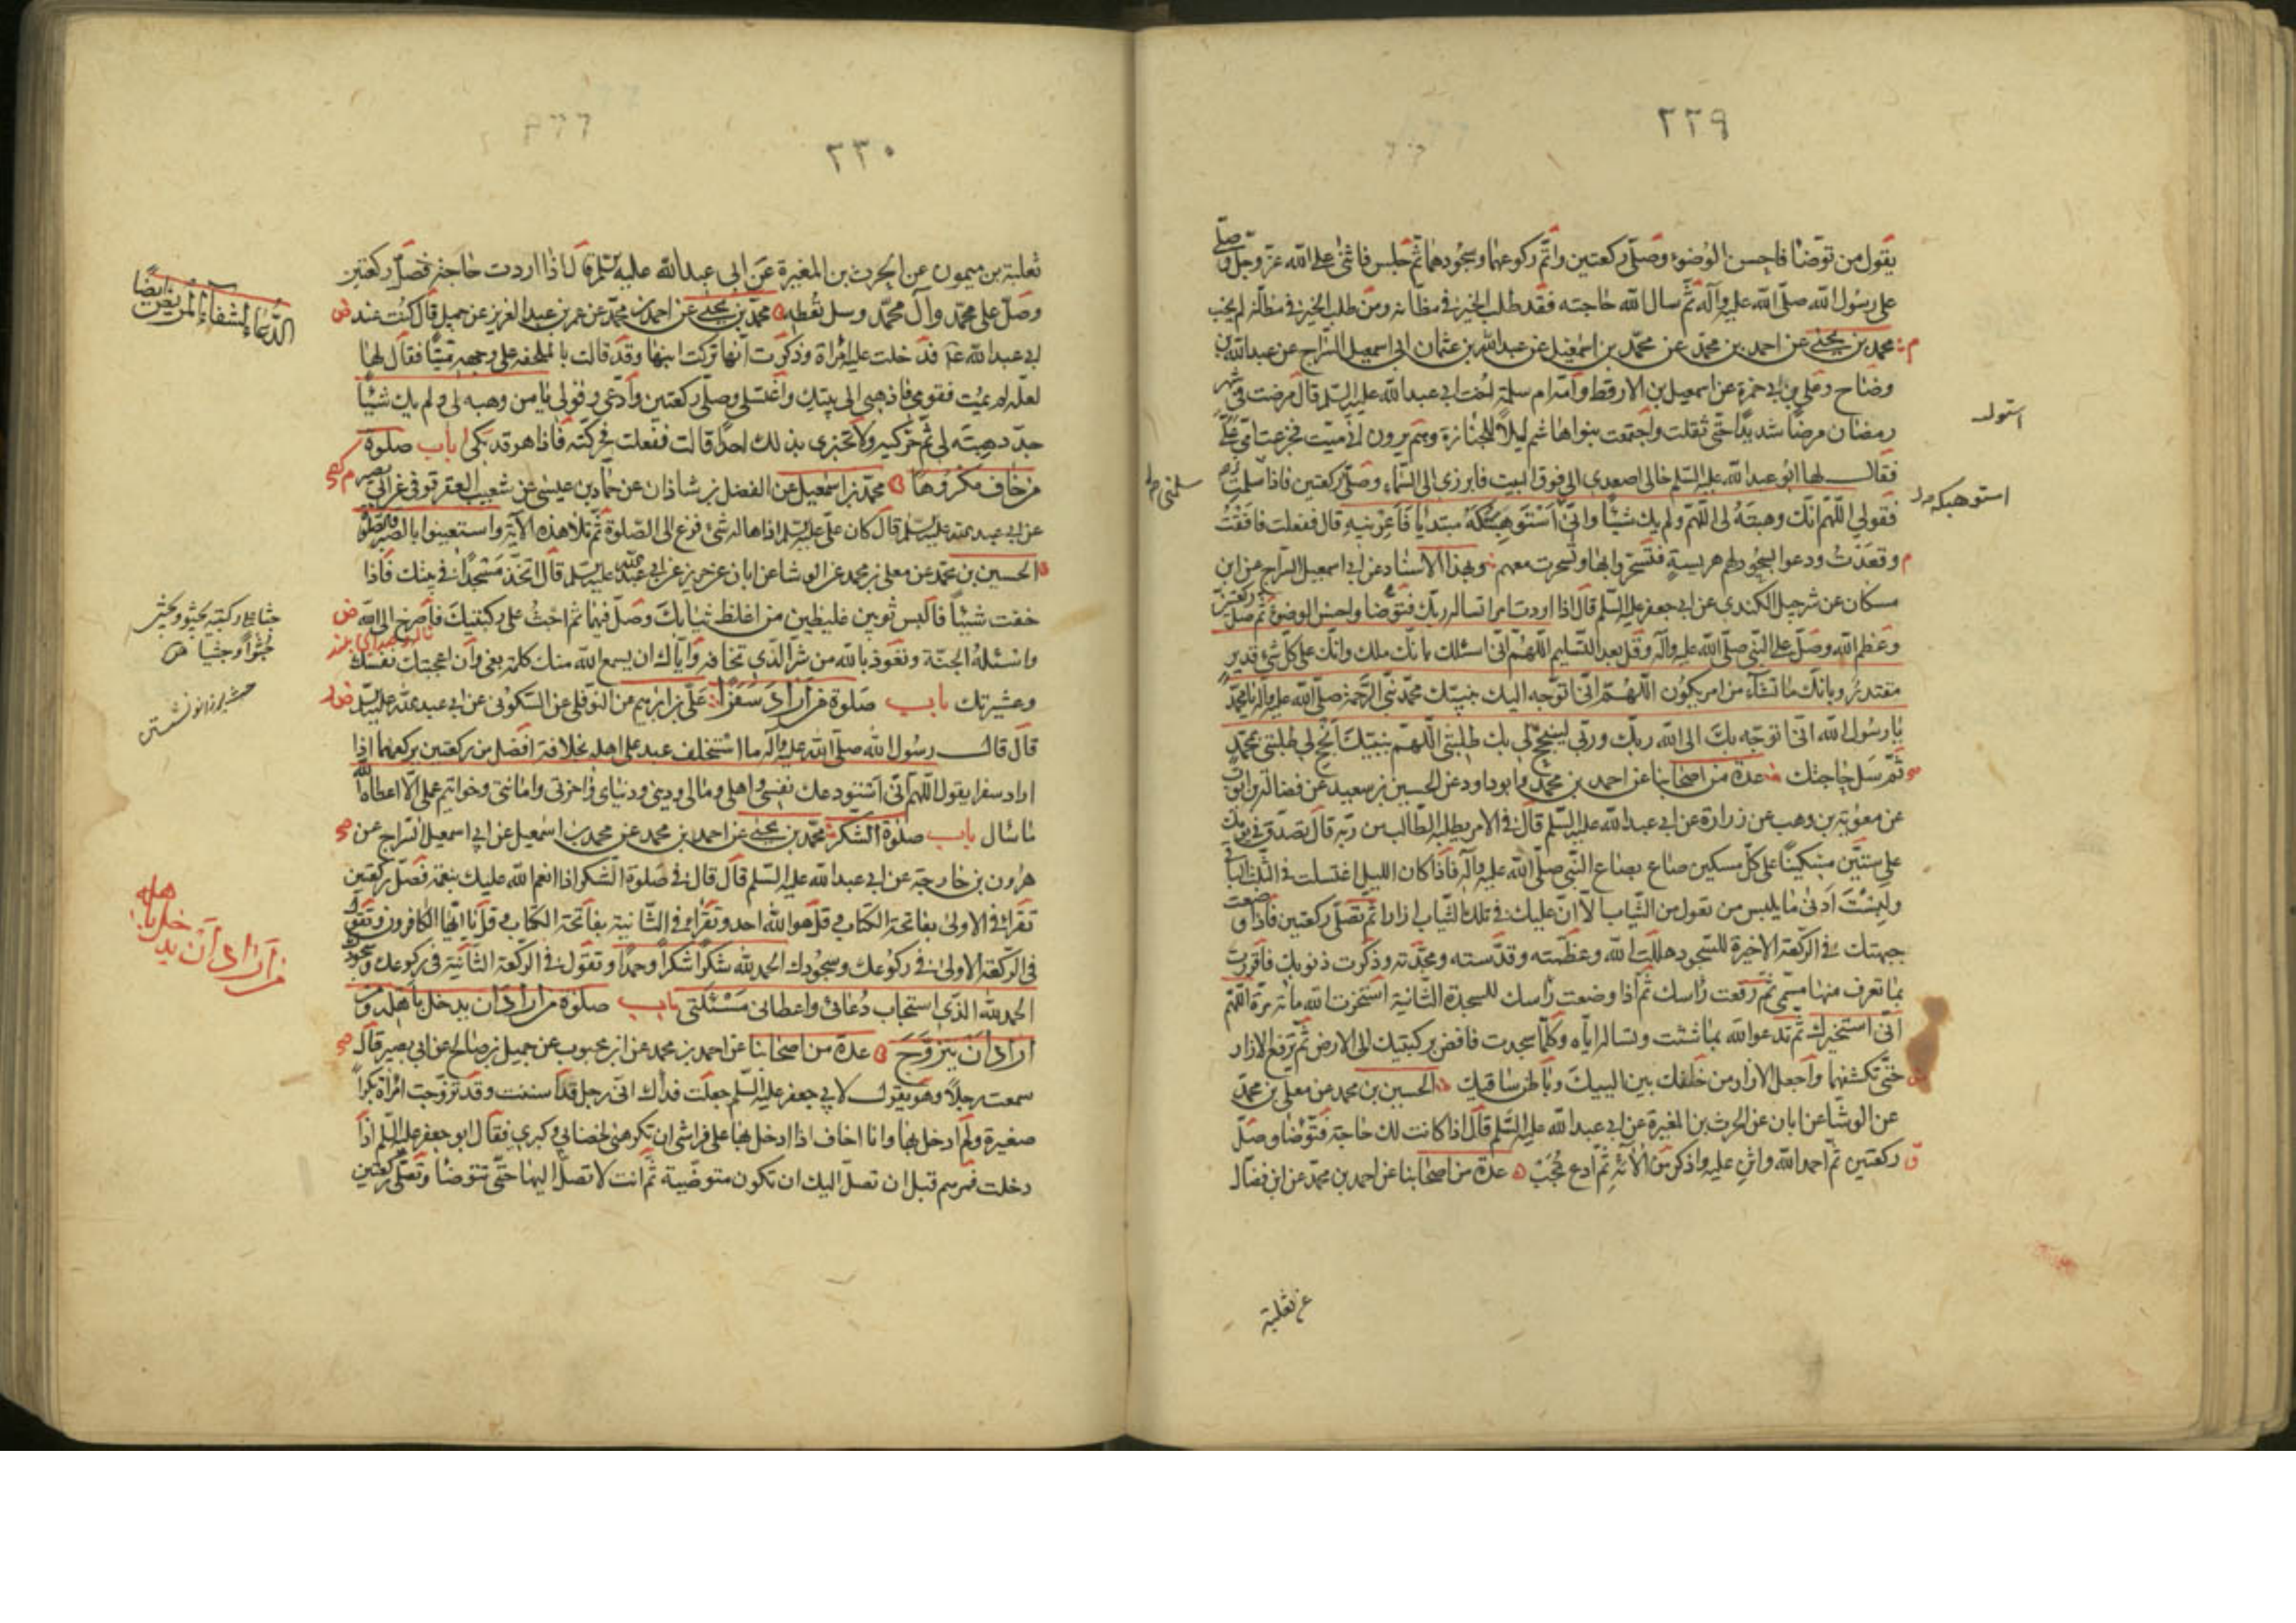 ٢٢٩
يقول من توضأ فاحسن الوضوء وصلّى ركعتين واتمّ ركوعهما وسجودهما ثمّ جلس فاثنى على الله عزّ وجلّ وصلّى
على رسول الله صلّى الله عليه وآله ثمّ سال الله حاجته فقد طلب الخير فى مظانّه ومن طلب الخير فى مظانّه لم يخب
م محمد بن يحيى عن احمد بن محمد عن محمّد بن اسمعيل عن عبدالله بن عثمان ابى اسمعيل السّراج عن عبدالله بن
وضاح وعلى بن ابى حمزة عن اسمعيل بن الارقط وامّه ام سلمة اخت ابى عبدالله عليه السّلم قال مرضت فى شهر
رمضان مرضًا شديدًا حتّى ثقلت واجتمعت بنواهاشم ليلاً للجنازة وهم يرون انّى ميّت فجزعت امّى علىّ
استوله
فقال لها ابو عبدالله عليه السّلم خالى اصعدى الى فوق البيت فابرزى الى السّماء وصلّى ركعتين فاذا سلّمت
استوهبكه
فقولى اللّهمّ انّك وهبته لى اللّهمّ ولم يك شيئًا وانّى استوهبتكه مبتديًا فاعرنيه قال ففعلت فافقت
م وقعدت ودعوا بسحور لهم هريسة فتسحّروا بها وتسحّرت معهم وبهذا الاسناد عن ابى اسمعيل السّراج عن ابن
مسكان عن شرحبيل الكندى عن ابى جعفر عليه السّلم قال اذا اردت امرا تساله ربّك فتوضّا واحسن الوضوء ثم صلّ ركعتين
وعظّم الله وصلّ على النّبى صلّى الله عليه وآله وقل بعد التّسليم اللّهمّ انّى اسئلك بانّك ملك وانّك على كلّ شىء قدير
مقتدر وبانّك ما تشاء من امر يكون اللّهمّ انّى اتوجّه اليك بنبيّك محمّد نبىّ الرّحمة صلّى الله عليه وآله يا محمّد
يا رسول الله انّى اتوجّه بك الى الله ربّك وربّى لينجح لى بك طلبتى اللّهمّ بنبيّك انجح لى طلبتى بمحمّد
ثمّ سل حاجتك عدة من اصحابنا عن احمد بن محمّد وابوداود عن الحسين بن سعيد عن فضالة بن ايّوب
عن معوية بن وهب عن زرارة عن ابى عبدالله عليه السّلم قال فى الامر يطلبه الطّالب من ربّه قال تصدّق فى يومك
على ستّين مسكينًا على كلّ مسكين صاع بصاع النّبى صلّى الله عليه وآله فاذا كان الليل اغتسلت فى الثّلث الباقى
ولبست ادنى ما يلبس من تعول من الثّياب الا انّ عليك فى تلك الثّياب ازارا ثمّ تصلّى ركعتين فاذا وضعت
جبهتك فى الرّكعة الاخيرة للسّجود هللت الله وعظّمته وقدّسته ومجّدته وذكرت ذنوبك فاقررت
بما تعرف منها مسمّى ثمّ رفعت راسك ثمّ اذا وضعت راسك للسجدة الثّانية استخرت الله مائة مرّة اللّهمّ
انّى استخيرك ثمّ تدعو الله بما شئت وتساله ايّاه وكلّما سجدت فافض بركبتيك الى الارض ثمّ ترفع الازار
حتّى تكشفهما واجعل الازار من خلفك بين اليتيك وباطن ساقيك الحسين بن محمد عن معلى بن محمّد
عن الوشّا عن ابان عن الحرث بن المغيرة عن ابى عبدالله عليه السّلم قال اذا كانت لك حاجة فتوضّا وصلّ
ركعتين ثمّ احمد الله واثن عليه واذكر من آلائه ثمّ ادع تجب عدّة من اصحابنا عن احمد بن محمّد عن ابن فضّال
عن ثعلبة
٢٣٠
ثعلبة بن ميمون عن الحرث بن المغيرة عن ابى عبدالله عليه السّلم قال اذا اردت حاجة فصلّ ركعتين
الدّعاء لشفاء المريض ايضًا
وصلّ على محمّد وآل محمّد وسل تعطه محمّد بن يحيى عن احمد بن محمّد عن عمر بن عبدالعزيز عن جميل قال كنت عند
ابى عبدالله ع فدخلت عليه امراة وذكرت انّها تركت ابنها وقد قالت بالملحفة على وجهه ميّتًا فقال لها
لعلّه لم يمت فقومى فاذهبى الى بيتك واغتسلى وصلّى ركعتين وادعى وقولى يا من وهبه لى ولم يك شيئًا
جدّد هبته لى ثمّ حرّكيه ولا تخبرى بذلك احدًا قالت ففعلت فحرّكته فاذا هو قد بكى باب صلوة
من خاف مكروهًا محمّد بن اسمعيل عن الفضل بن شاذان عن حمّاد بن عيسى عن شعيب العقرقوفى عن ابى بصير
عن ابى عبدالله عليه السّلم قال كان علىّ عليه السّلم اذا هاله شىء فزع الى الصّلوة ثمّ تلا هذه الآية واستعينوا بالصّبر والصّلوة
الحسين بن محمّد عن معلى بن محمد عن الوشا عن ابان عن حريز عن ابى عبدالله عليه السّلم قال اتّخذ مسجدًا فى بيتك فاذا
خفت شيئًا فالبس ثوبين غليظين من اغلظ ثيابك وصلّ فيهما ثمّ اجث على ركبتيك فاصرخ الى الله
جثا على ركبتيه يجثو ويجثى
جثوًا وجثيا
واسئله الجنّة وتعوّذ بالله من شرّ الّذى تخافه وايّاك ان يسمع الله منك كلمة بغى وان اعجبتك نفسك
وعشيرتك باب صلوة من اراد سفرًا علىّ بن ابرهيم عن النّوفلى عن السّكونى عن ابى عبدالله عليه السّلم
قال قال رسول الله صلّى الله عليه وآله ما استخلف عبد على اهله بخلافة افضل من ركعتين يركعهما اذا
اراد سفرا يقول اللّهمّ انّى استودعك نفسى واهلى ومالى ودينى ودنياى وآخرتى وامانتى وخواتيم عملى الّا اعطاه الله
ما سال باب صلوة الشّكر محمّد بن يحيى عن احمد بن محمد عن محمد بن اسمعيل عن ابى اسمعيل السّراج عن
هرون بن خارجة عن ابى عبدالله عليه السّلم قال قال فى صلوة الشّكر اذا انعم الله عليك بنعمة فصلّ ركعتين
تقرا فى الاولى بفاتحة الكتاب وقل هو الله احد وتقرا فى الثّانية بفاتحة الكتاب وقل يا ايّها الكافرون وتقول
فى الرّكعة الاولى فى ركوعك وسجودك الحمد لله شكرًا شكرًا وحمدًا وتقول فى الرّكعة الثّانية فى ركوعك وسجودك
من اراد ان يدخل باهله
الحمد لله الذى استجاب دعائى واعطانى مسئلتى باب صلوة من اراد ان يدخل باهله ومن
اراد ان يتزوّج عدة من اصحابنا عن احمد بن محمد عن ابن محبوب عن جميل بن صالح عن ابى بصير قال
سمعت رجلاً وهو يقول لابى جعفر عليه السّلم جعلت فداك انّى رجل قد اسننت وقد تزوّجت امراة بكرًا
صغيرة ولم ادخل بها وانا اخاف اذا ادخل بها على فراشى ان تكرهنى لخضابى وكبرى فقال ابو جعفر عليه السّلم اذا
دخلت فمرهم قبل ان تصل اليك ان تكون متوضّية ثمّ انت لا تصل اليها حتّى تتوضّا وتصلّى ركعتين